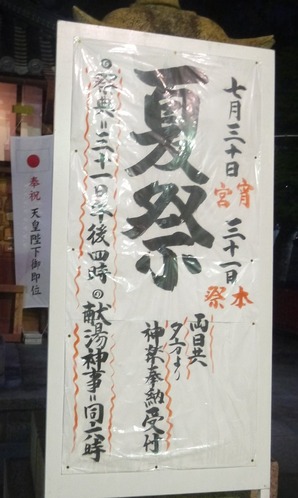 七月三十日 宵宮
三十一日 本祭
夏祭
両日共
夕方より
神楽奉納受付
祭典＝三十一日午後四時
献湯神事＝同六時
奉祝 天皇陛下御即位